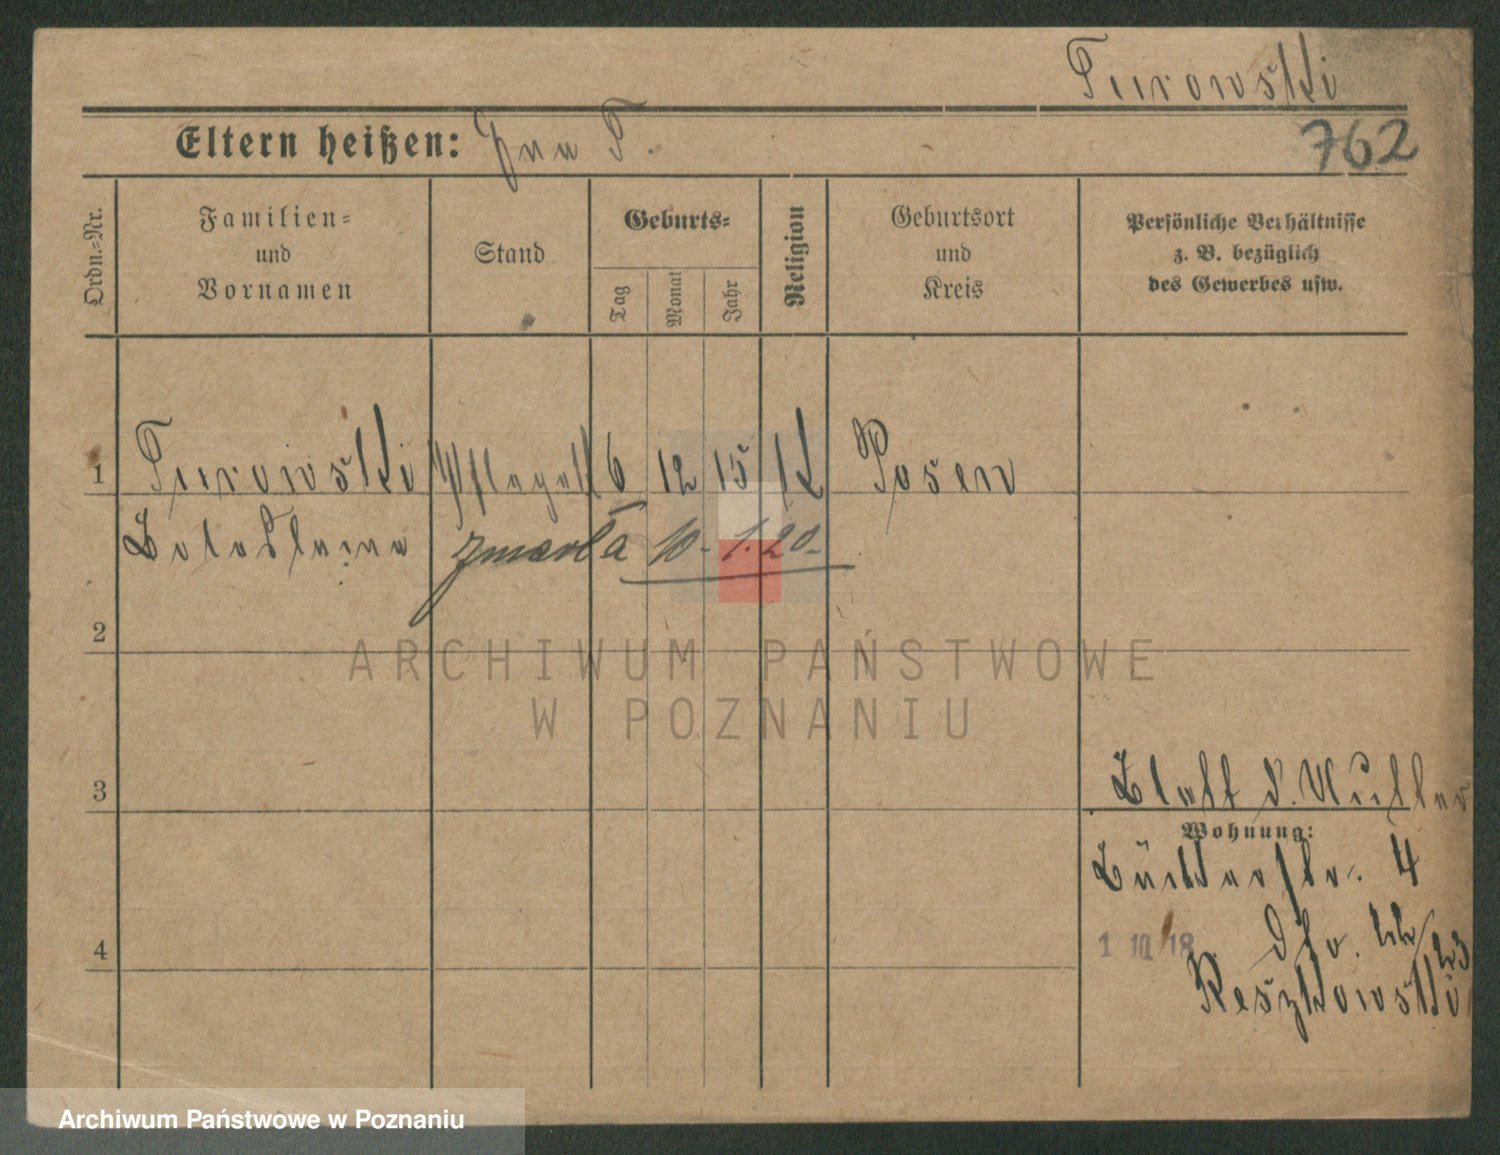 Turowski
762
Eltern heißen: Jna T.
Ordn.=Nr.
Familien=
und
Vornamen
Stand
Geburts=
Tag
Monat
Jahr
Religion
Geburtsort
und
Kreis
Persönliche Verhältnisse
z. B. bezüglich
des Gewerbes usw.
1 Turowski 6 12 15 K Posen
zmarła 10. 1. 20.
2
ARCHIWUM PAŃSTWOWE
W POZNANIU
3
Wohnung:
4
4
1 III 18
Reszkowski
Archiwum Państwowe w Poznaniu